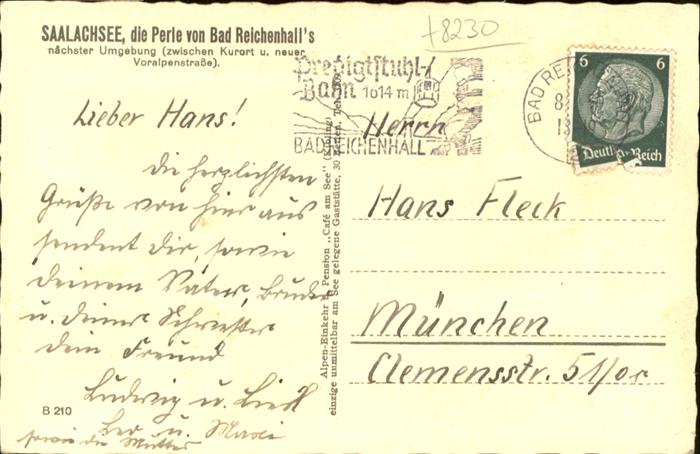 SAALACHSEE, die Perle von Bad Reichenhall's
nächster Umgebung (zwischen Kurort u. neuer
Voralpenstraße).
+8230
Predigtstuhl-
Bahn 1614 m
BAD REICHENHALL
BAD REI
8
6 6
Deutsches Reich
Lieber Hans!
die herzlichsten
Grüße von hier aus
sendent dir, sowie
deinem Vater, Bruder
u. deiner Schwester
dein Freund
Ludwig u. Liesl
u. Maxi
sowie die Mutter
B 210
Alpen-Einkehr u. Pension „Café am See" (Kibling)
einzige unmittelbar am See gelegene Gaststätte, 30 Betten, Tel.
Herrn
Hans Fleck
München
Clemensstr. 51/or